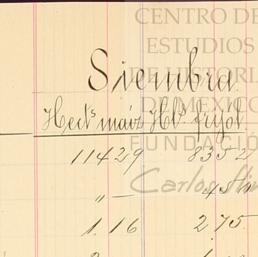 CENTRO DE
ESTUDIOS
DE HISTORIA
DE MÉXICO
FUNDACIÓ
Carlos Slim
Siembra
Hect.s maíz Hl.s frijol
114 29 835
" —
1. 16 2. 75.